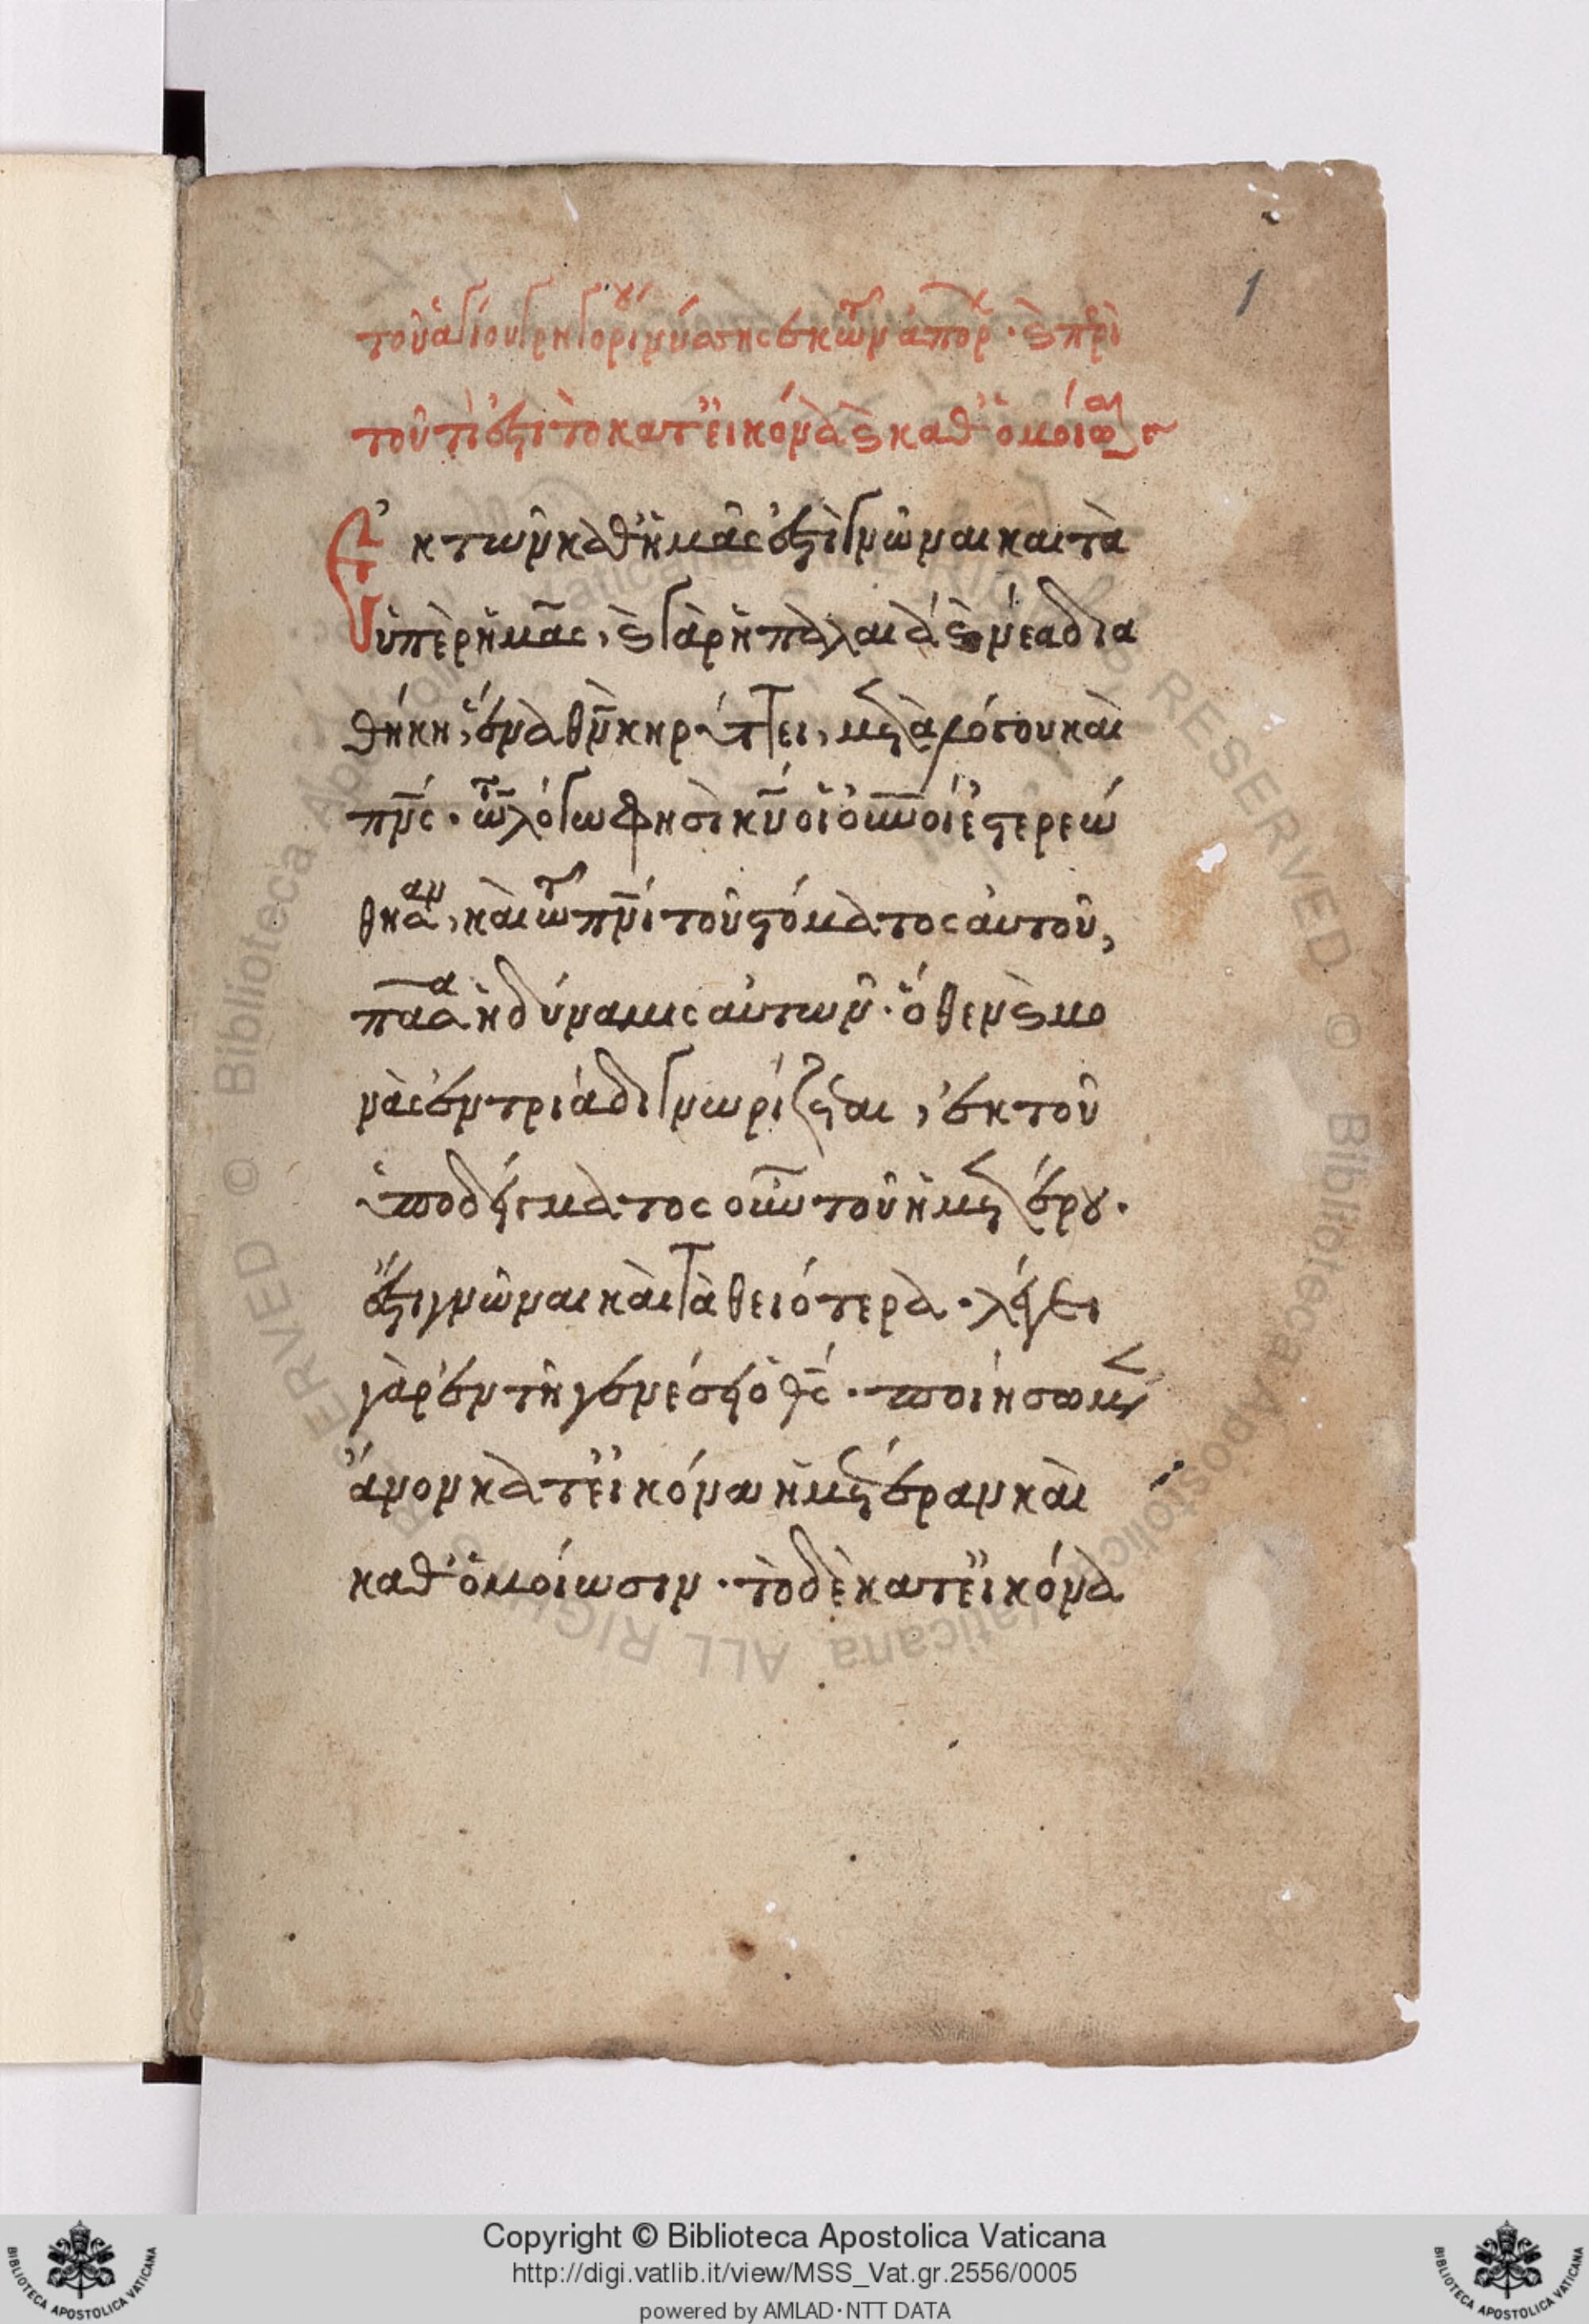 1
τοῦ ἁγίου γρηγορίου νύσης ἐκ τῶν ἀπορ · ϛ περὶ
τοῦ τί ἐστι τὸ κατ εἰκόνα ϛ καθ ὁμοίωσιν
Ἐκ τῶν καθ ἡμᾶς ἔστι γνῶναι και τὰ
ὑπὲρ ἡμᾶς, ϛ γὰρ ἡ παλαιὰ ϛ νέα δια
θήκη, ἕνα θν κηρύττει, μετὰ λόγου καὶ
πνς · τῶ λόγω φησὶ κυ οἱ οὐνοὶ ἐστερεώ
θησαν, καὶ τῶ πνι τοῦ στόματος αὐτοῦ,
πᾶσα ἡ δύναμις αὐτων · ὅθεν ϛ μο
νὰς ἐν τριάδι γνωρίζεται, ἐκ τοῦ
ὑποδείγματος οὖν τοῦ ἡμετέρου ·
ἔστι γνῶναι καὶ τὰ θειότερα · λέγει
γὰρ ἐν τῆ γενέσει ὁ θς · ποιήσωμεν
ἄνον κατ εἰκόνα ἡμετέραν καὶ
καθ ὁμοίωσιν · τὸ δὲ κατ εἰκόνα
Copyright © Biblioteca Apostolica Vaticana
http://digi.vatlib.it/view/MSS_Vat.gr.2556/0005
powered by AMLAD·NTT DATA